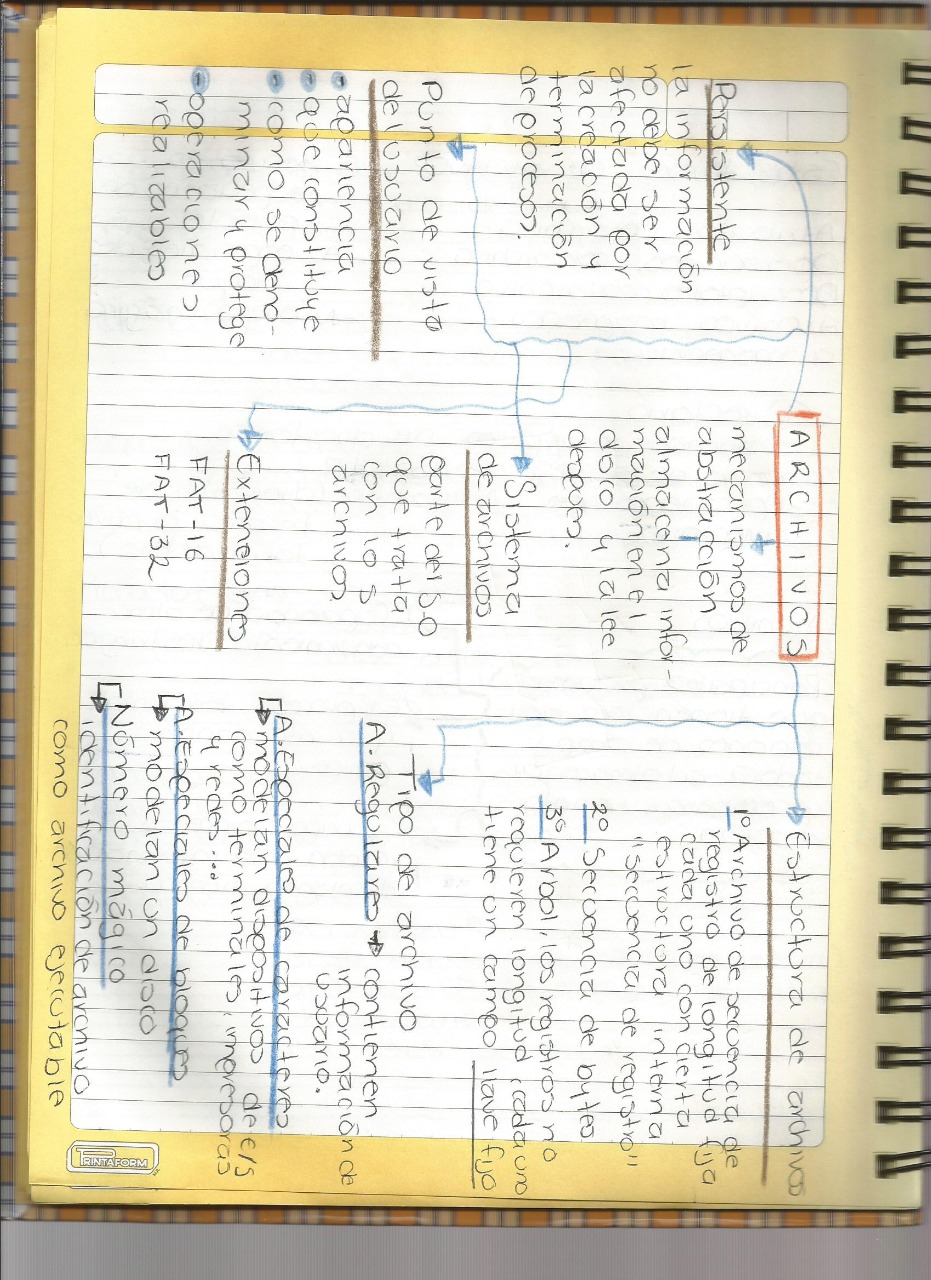 ARCHIVOS
mecanismos de
abstracción
almacena infor-
mación en el
disco y la lee
después.
Persistente
la información
no debe ser
afectada por
la creación y
terminación
de procesos.
Punto de vista
del usuario
- apariencia
- que constituye
- como se deno-
minar y protege
- operaciones
realizables
Sistema
de archivos
parte del S.O
que trata
con los
archivos
Extensiones
FAT-16
FAT-32
Estructura de archivos
1º Archivo de secuencia de
registro de longitud fija
cada uno con cierta
estructura interna
"secuencia de registro"
2º Secuencia de bytes
3º Arbol, los registros no
requieren longitud cada uno
tiene un campo llave fijo
Tipo de archivo
A. Regulares → contienen
información de
usuario.
A. Especiales de caracteres
modelan dispositivos de E/S
como terminales, impresoras
y redes...
A. Especiales de bloques
modelan un disco
Número mágico
identificación de archivo
como archivo ejecutable
PRINTAFORM